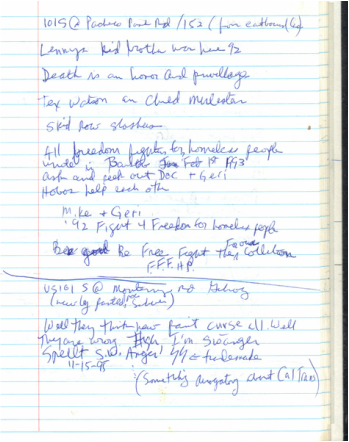 101 S @ Pacheco Pass Rd /152 (from eastbound
Lennys kid brother was here 92
Death is an honor and privilage
Tex Watson an Child Molestor
Skid Row Slashers
All freedom fighters for homeless people
unite in Feb 1st 1993
ask and seek out Doc + Geri
Hobos help each oth
Mike + Geri
'92 Fight 4 Freedom for homeless peple
Be Free Fight the
F.F.F.H.P.
US101 S @ Monterey Rd Gilroy
(newly painted, silver)
Well they think new paint curse all. Well
They are wrong I'm Stranger
Spellt S.W. Anger trademark
11-15-95
(Something derogatory about CalTrans)